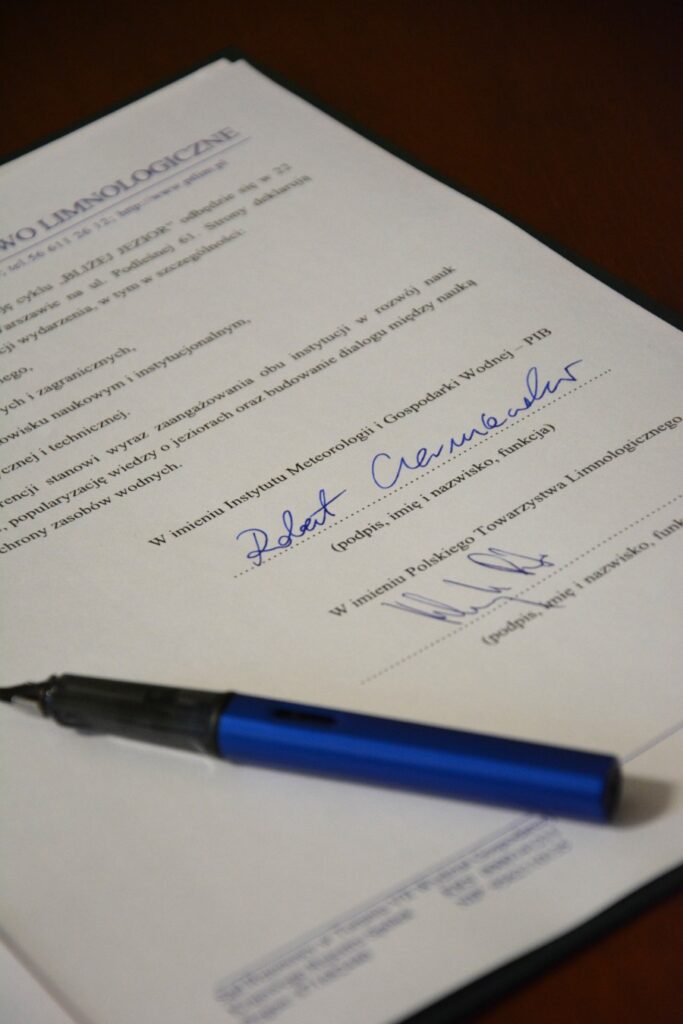 WO LIMNOLOGICZNE
tel.56 611 26 12, http://www.ptlim.pl
cyklu „BLIŻEJ JEZIOR” odbędzie się w 22
Warszawie na ul. Podleśnej 61. Strony deklarują
cji wydarzenia, w tym w szczególności:
ego,
ych i zagranicznych,
owisku naukowym i instytucjonalnym,
ycznej i technicznej.
rencji stanowi wyraz zaangażowania obu instytucji w rozwój nauk
, popularyzację wiedzy o jeziorach oraz budowanie dialogu między nauką
chrony zasobów wodnych.
W imieniu Instytutu Meteorologii i Gospodarki Wodnej – PIB
Robert Czerniawski
(podpis, imię i nazwisko, funkcja)
W imieniu Polskiego Towarzystwa Limnologicznego
(podpis, imię i nazwisko, funk